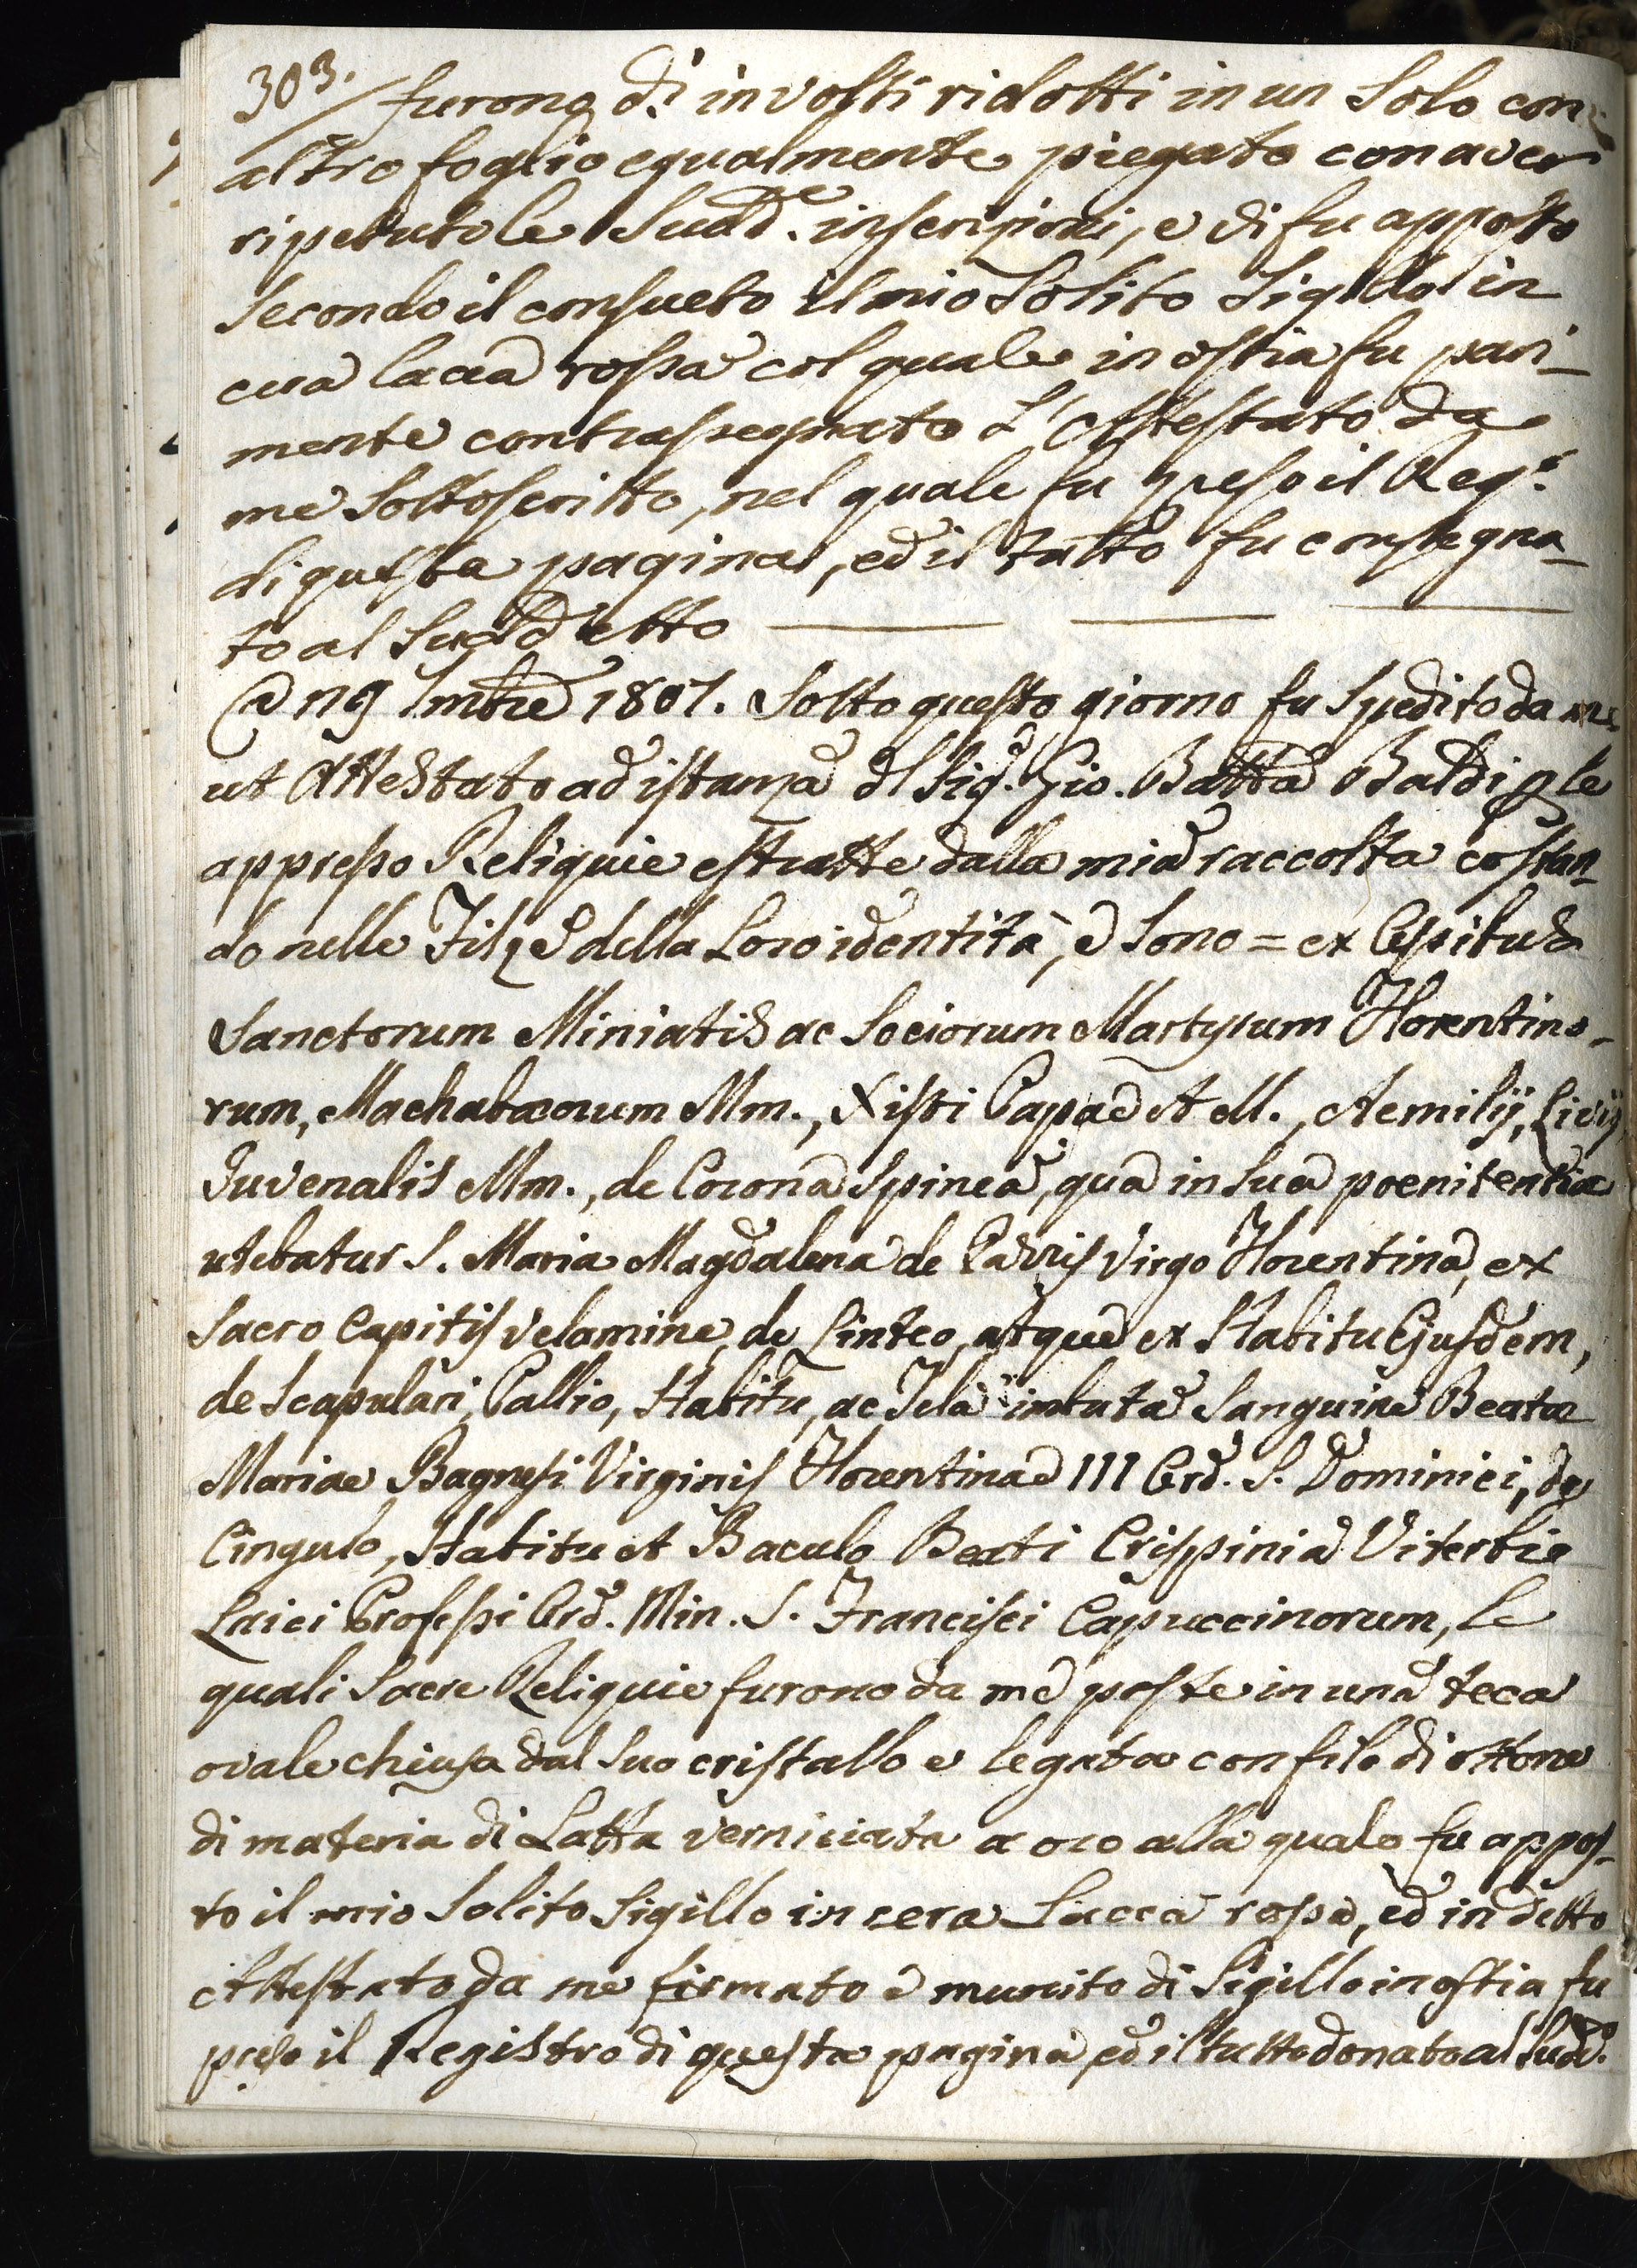 303.
furono d.i involti ridotti in un Solo con
altro foglio egualmente piegato con aver
ripetuto le Sudd.e inscrizioni, e di fu apposto
Secondo il consueto il mio Solito Sigillo in
cera lacca rossa col quale in ostia fu pari-
mente contrassegnato L'Attestato da
me Sottoscritto, nel quale fu preso il Reg.o
di questa pagina, ed il tutto fu consegna-
to al Sudd etto
1801. Sotto questo giorno fu Spedito da me
ut Attestato ad istanza dl Sig.r Gio. Batta Baldi p le
appresso Reliquie estratte dalla mia raccolta costan-
do nelle Filze della Loro identità, e Sono = ex Capitus
Sanctorum Miniatis ac Sociorum Martyrum Florentino-
rum, Machabæorum Mm., Xisti Papae et M., Aemilij, Livij
Juvenalis Mm., de Corona Spinea, qua in Sua poenitentia
utebatur S. Maria Magdalena de Pazzis Virgo Florentina, ex
Sacro Capitis velamine, de Linteo, atque ex Habitu Ejusdem,
de Scapulari, Pallio, Habitu, ac Tela imbuta Sanguine Beatæ
Mariae Bagnesi Virginis Florentinae III Ord. S. Dominici, de
Cingulo, Habitu et Baculo Beati Crispini a Viterbio
Laici Professi Ord. Min. S. Francisci Capuccinorum, le
quali Sacre Reliquie furono da me poste in una teca
ovale chiusa dal Suo cristallo e legata con filo di ottone
di materia di Latta verniciata a oro alla quale fu appos-
to il mio Solito Sigillo in cera Lacca rossa, ed in detto
Attestato da me firmato e munito di Sigillo in ostia fu
preso il Registro di questa pagina, ed il tutto donato al Sudd.o